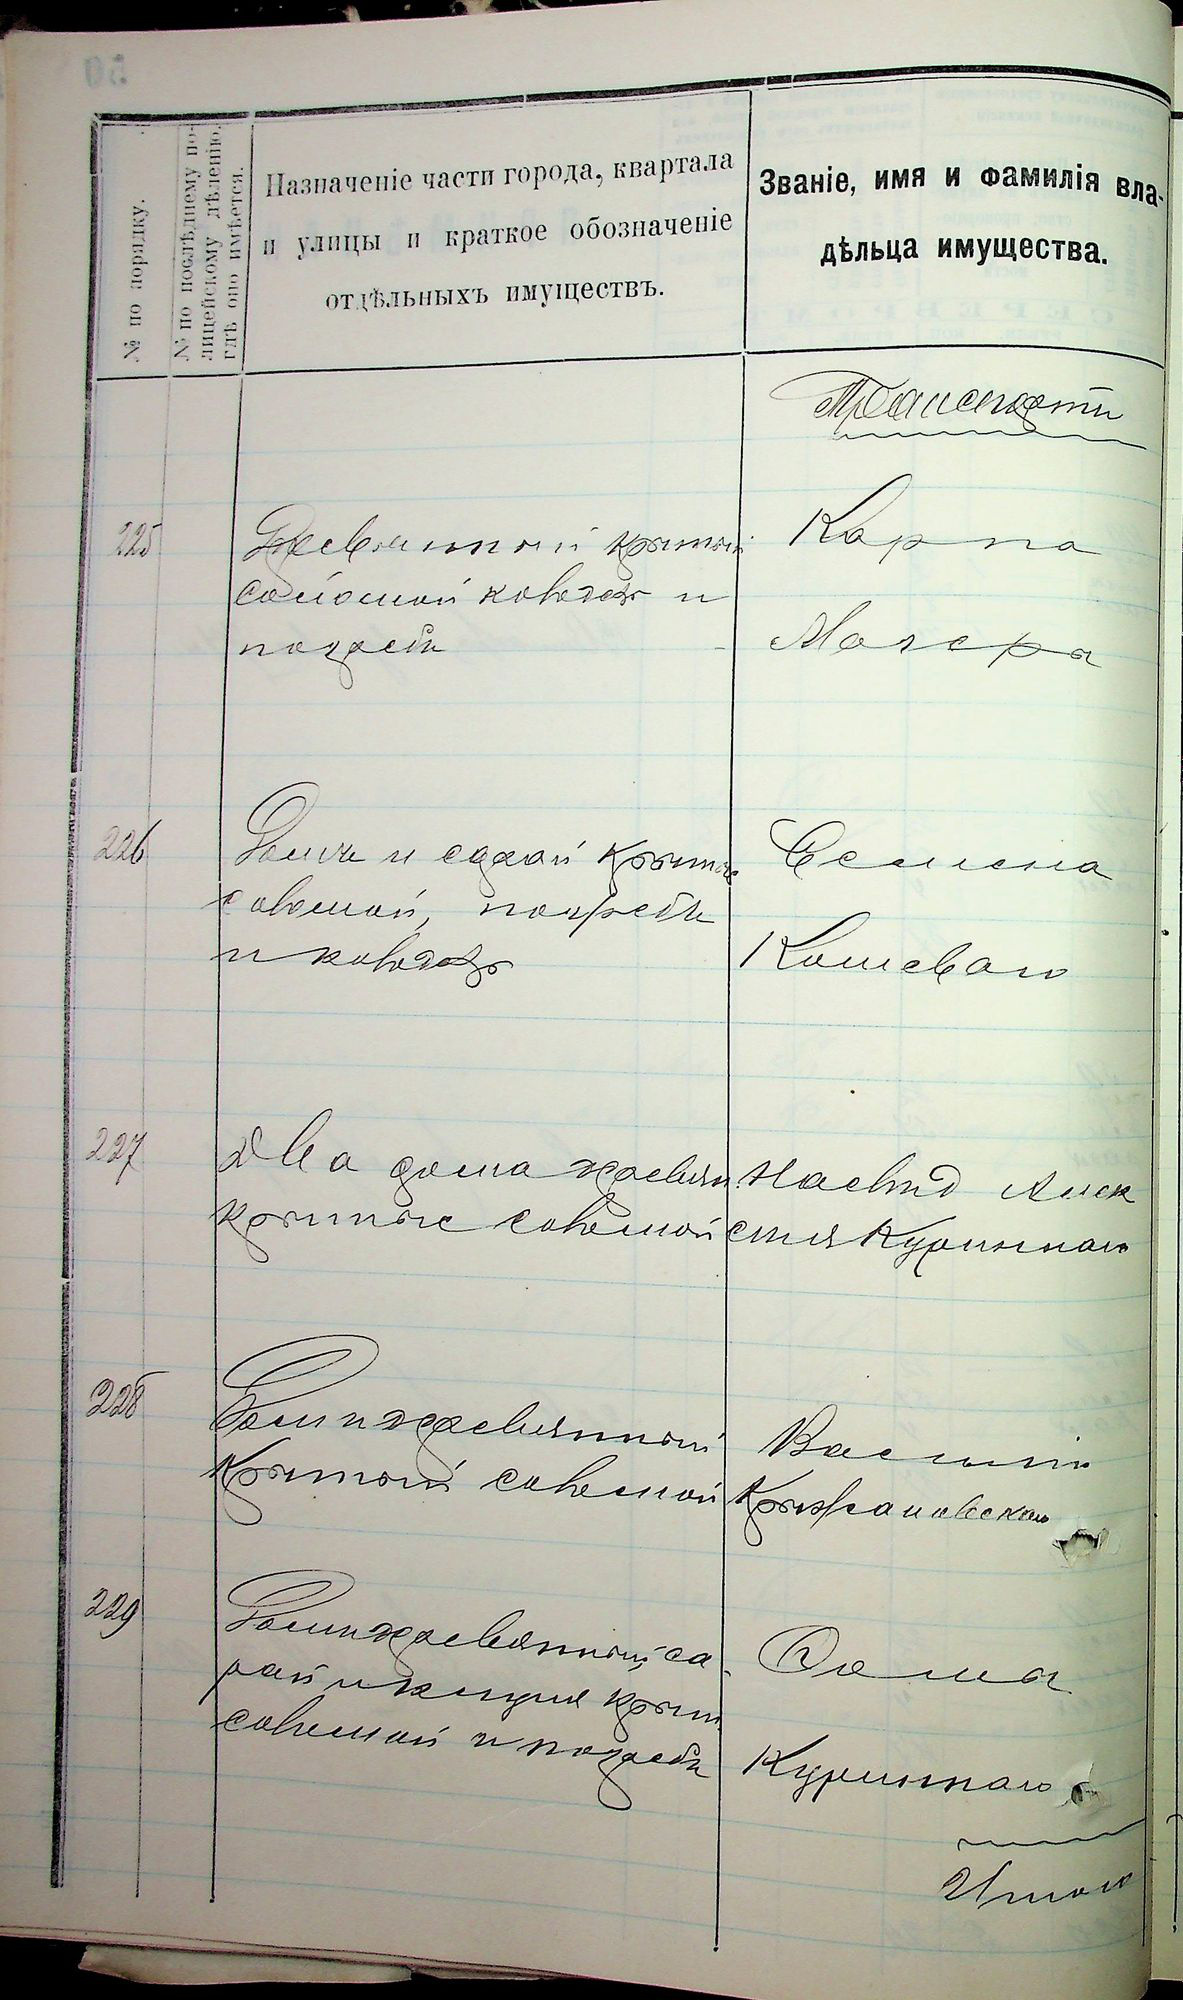 № по порядку.
№ по послѣднему по-
лицейскому дѣленію,
гдѣ оно имѣется.
Назначеніе части города, квартала
и улицы и краткое обозначеніе
отдѣльныхъ имуществъ.
Званіе, имя и фамилія вла-
дѣльца имущества.
Транспортъ
225
Деревянный крытый
соломой колодезь и
погребъ
Карпа
Мазеры
226
Домъ и сарай крытые
соломой, погребъ
и колодезь
Семена
Кошеваго
227
Два дома деревян.
крытые соломой
Наслѣд Алек
сѣя Куриннаго
228
Домъ деревянный
крытый соломой
Василія
Крыжановскаго
229
Домъ деревянный, са
рай и клуня крыт
соломой и погребъ
Фомы
Куриннаго
Итого